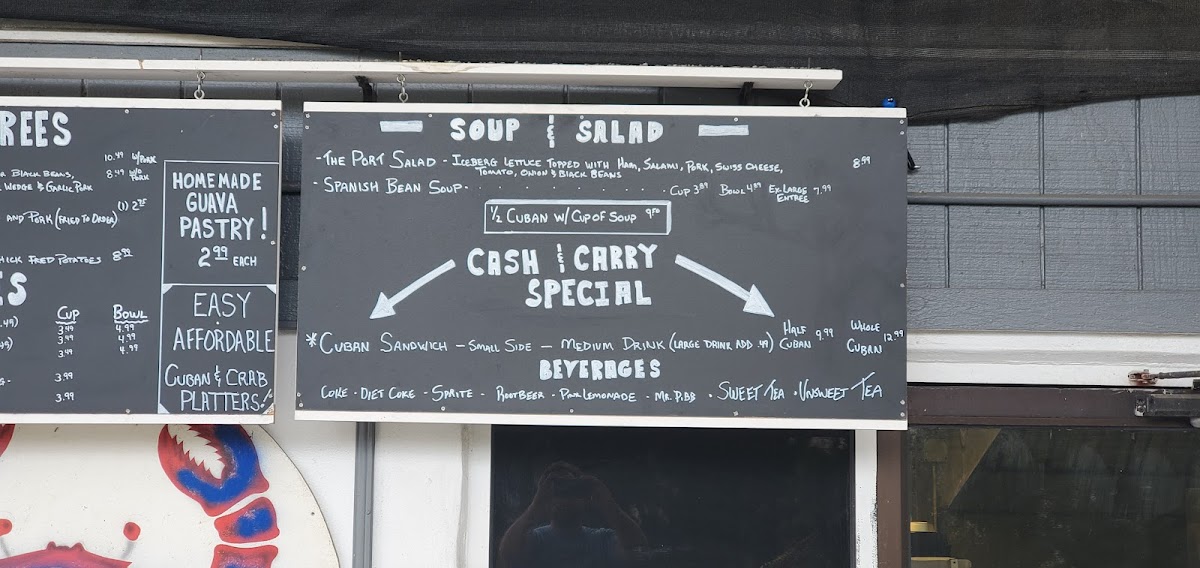 REES
10.49 W/PORK
BLACK BEANS, 8.49 W/O PORK
WEDGE & GARLIC PORK
AND PORK (FRIED TO ORDER) (1) 2.75
HICK FRIED POTATOES 8.99
ES
CUP BOWL
3.49 4.99
3.49 4.99
3.49 4.99
3.99
3.99
HOMEMADE
GUAVA
PASTRY!
2.99 EACH
EASY
AFFORDABLE
CUBAN & CRAB
PLATTERS!
SOUP & SALAD
- THE PORT SALAD - ICEBERG LETTUCE TOPPED WITH HAM, SALAMI, PORK, SWISS CHEESE, 8.59
TOMATO, ONION & BLACK BEANS
- SPANISH BEAN SOUP - CUP 3.89 BOWL 4.89 EX-LARGE ENTREE 7.99
1/2 CUBAN W/ CUP OF SOUP 9.50
CASH & CARRY
SPECIAL
*CUBAN SANDWICH - SMALL SIDE - MEDIUM DRINK (LARGE DRINK ADD .49) HALF CUBAN 9.99 WHOLE CUBAN 12.99
BEVERAGES
COKE - DIET COKE - SPRITE - ROOTBEER - PINK LEMONADE - MR. PIBB - SWEET TEA - UNSWEET TEA